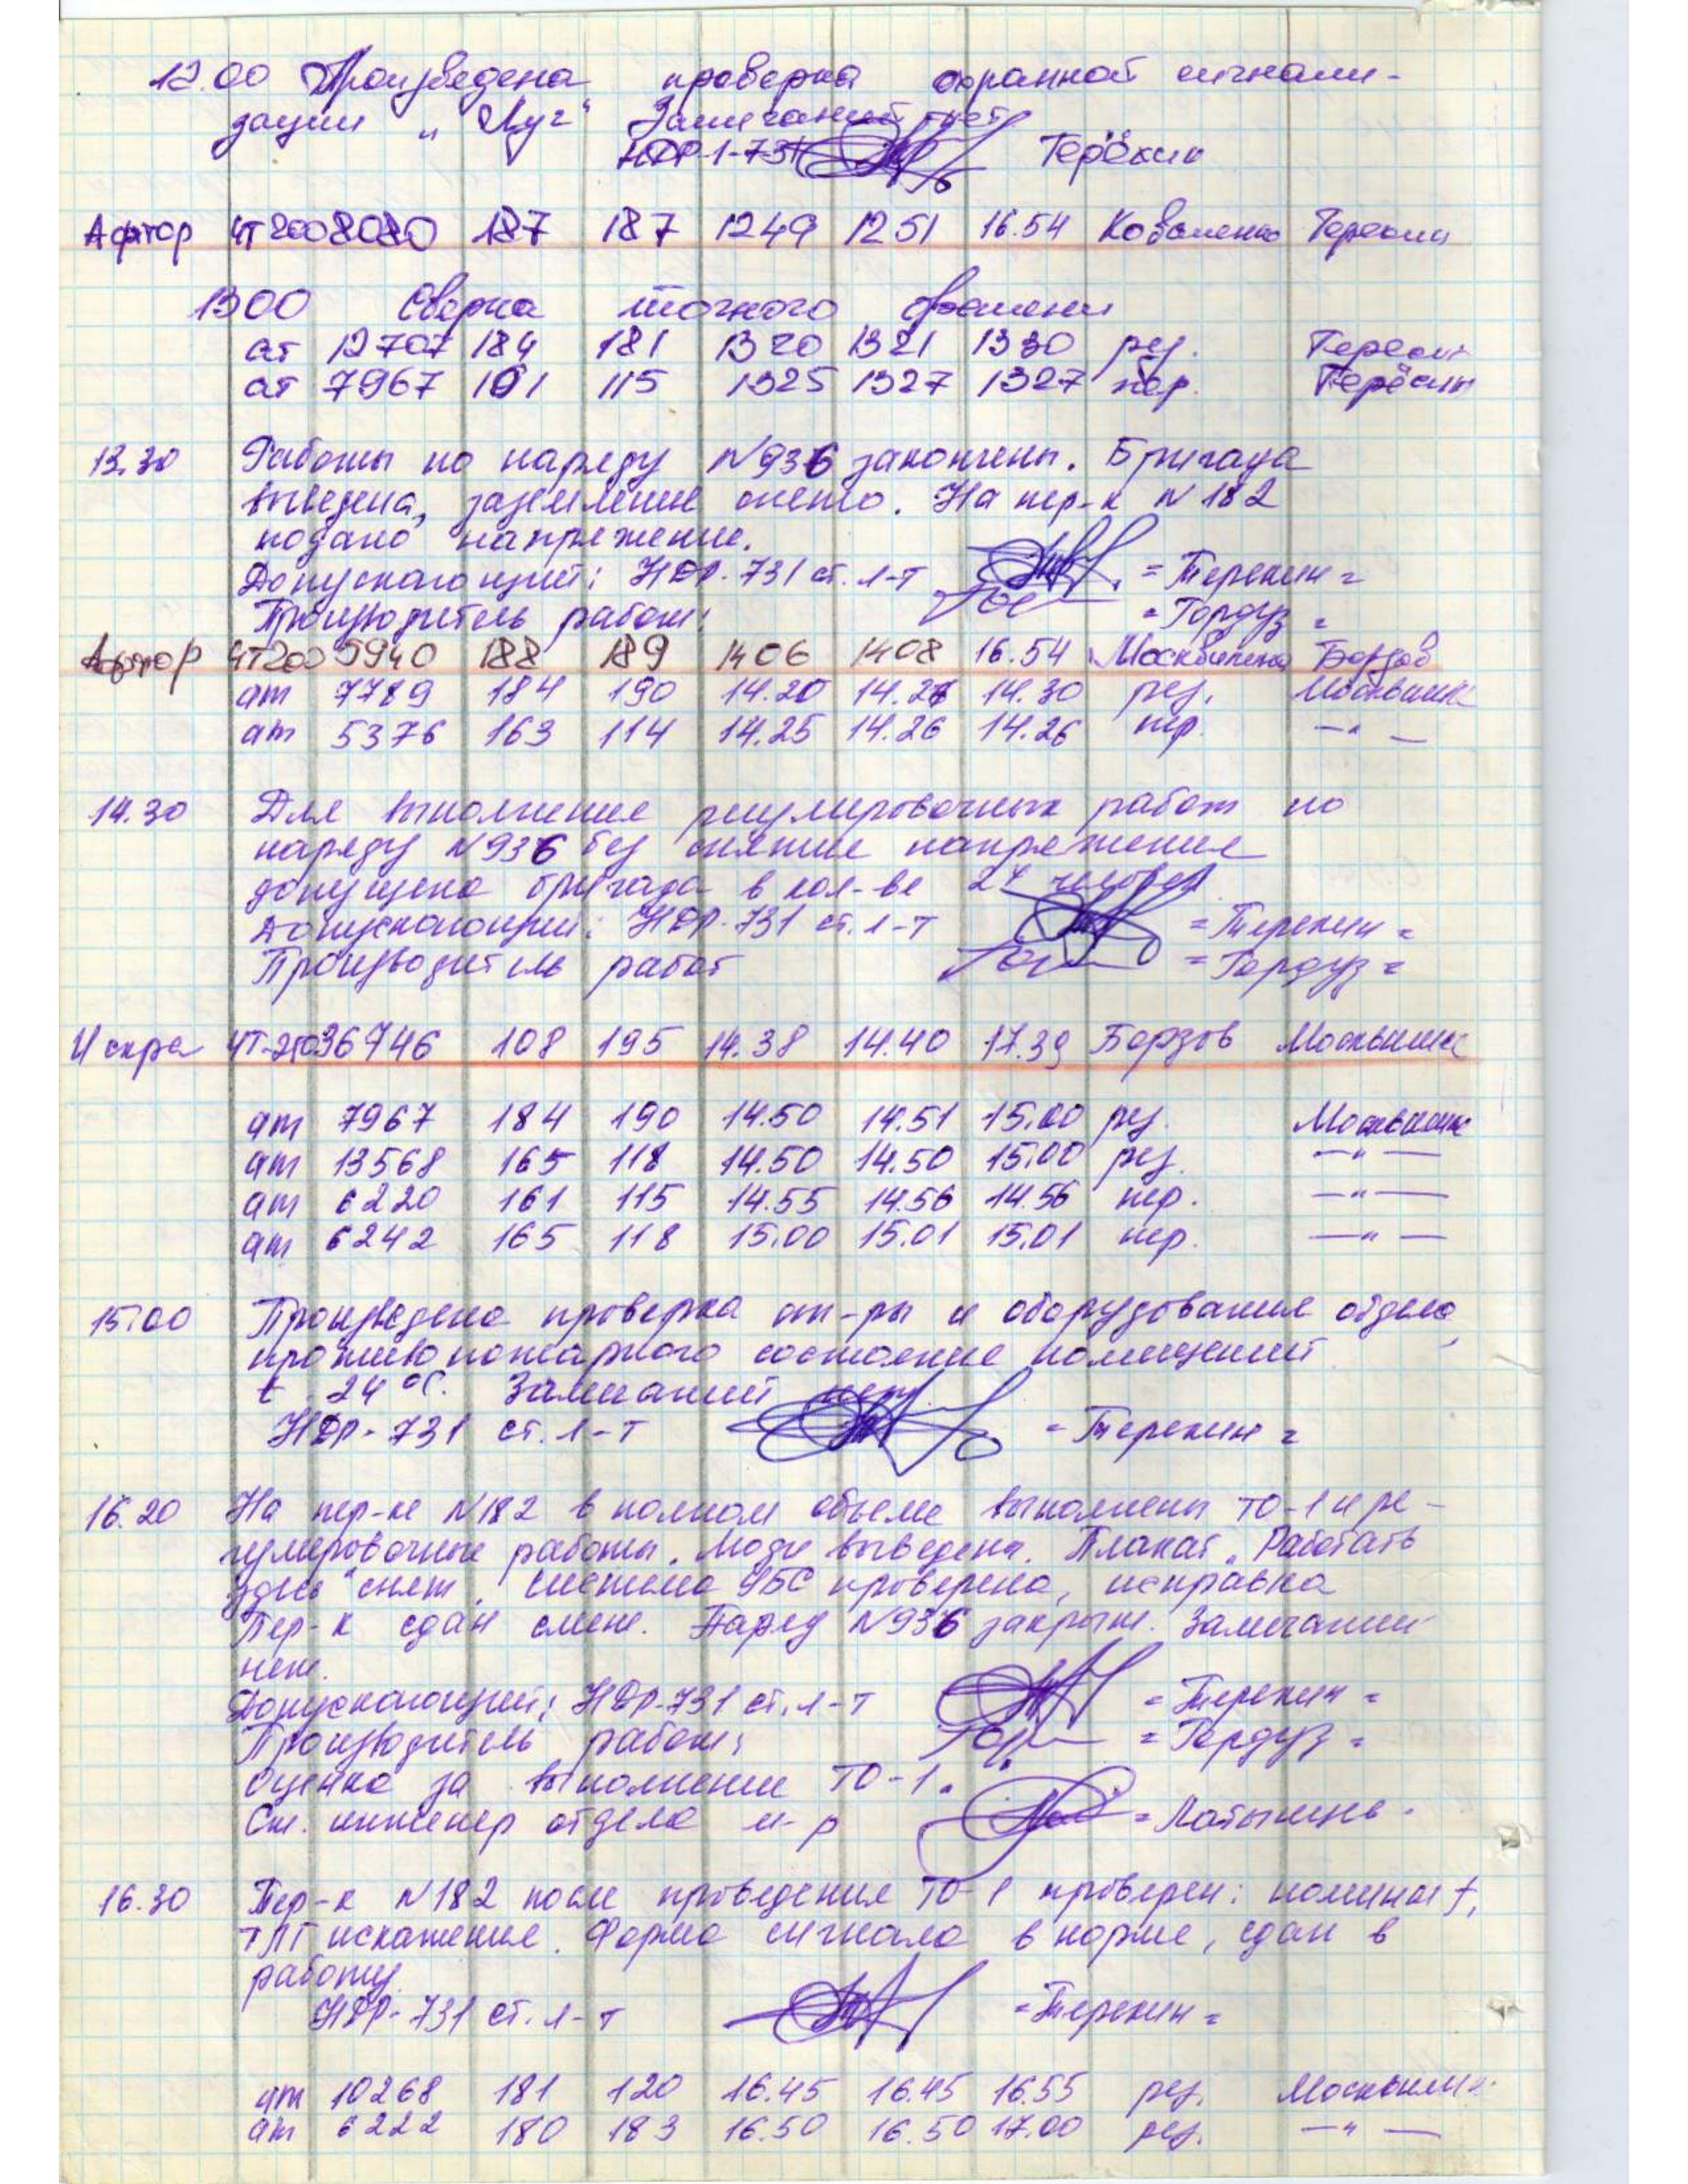 12.00 Произведена проверка охранной сигнали-
зации „Луг“ Замечаний нет
НДР-1-731 Терёхин
Афтор ЧТ200 8080 187 187 1249 1251 16.54 Коваленко Терехин
1300 Сверка точного времени
ат 12707 184 181 1320 1321 1330 рез. Терехин
ат 7967 161 115 1325 1327 1327 пер. Терёхин
13.30 Работы по наряду N936 закончены. Бригада
выведена, заземление снято. На пер-к N 182
подано напряжение.
Допускающий: НДР-731 ст. л-т =Терехин=
Производитель работ: =Гордуз=
Афтор ЧТ200 5940 188 189 1406 1408 16.54 Борзов
ат 7789 184 190 14.20 14.21 14.30 рез.
ат 5376 163 114 14.25 14.26 14.26 пер. —"—
14.30 Для выполнения регулировочных работ по
наряду N936 без снятия напряжения
допущена бригада в кол-ве человек
Допускающий: НДР-731 ст. л-т =Терехин=
Производитель работ =Гордуз=
Искра ЧТ-250 36746 108 195 14.38 14.40 17.39 Борзов
ат 7967 184 190 14.50 14.51 15.00 рез.
ат 13568 165 118 14.50 14.50 15.00 рез. —"—
ат 6220 161 115 14.55 14.56 14.56 пер. —"—
ат 6242 165 118 15.00 15.01 15.01 пер. —"—
15.00 Произведена проверка ап-ры и оборудования отдела,
противопожарного состояние помещений
t 24°С. Замечаний нет.
НДР-731 ст. л-т =Терехин=
16.20 На пер-ке N182 в полном объеме выполнены ТО-1 и ре-
гулировочные работы. Люди выведены. Плакат „Работать
здесь“ снят, система УБС проверена, исправна
Пер-к сдан смене. Наряд N936 закрыт. Замечаний
нет.
Допускающий: НДР-731 ст. л-т =Терехин=
Производитель работ: =Гордуз=
Оценка за выполнение ТО-1.
Ст. инженер отдела м-р
16.30 Пер-к N182 после проведения ТО-1 проверен: номинал f,
ТЛГ искажение. Форма сигнала в норме, сдан в
работу.
НДР-731 ст. л-т =Терехин=
ат 10268 181 120 16.45 16.45 16.55 рез.
ат 6222 180 183 16.50 16.50 17.00 рез. —"—